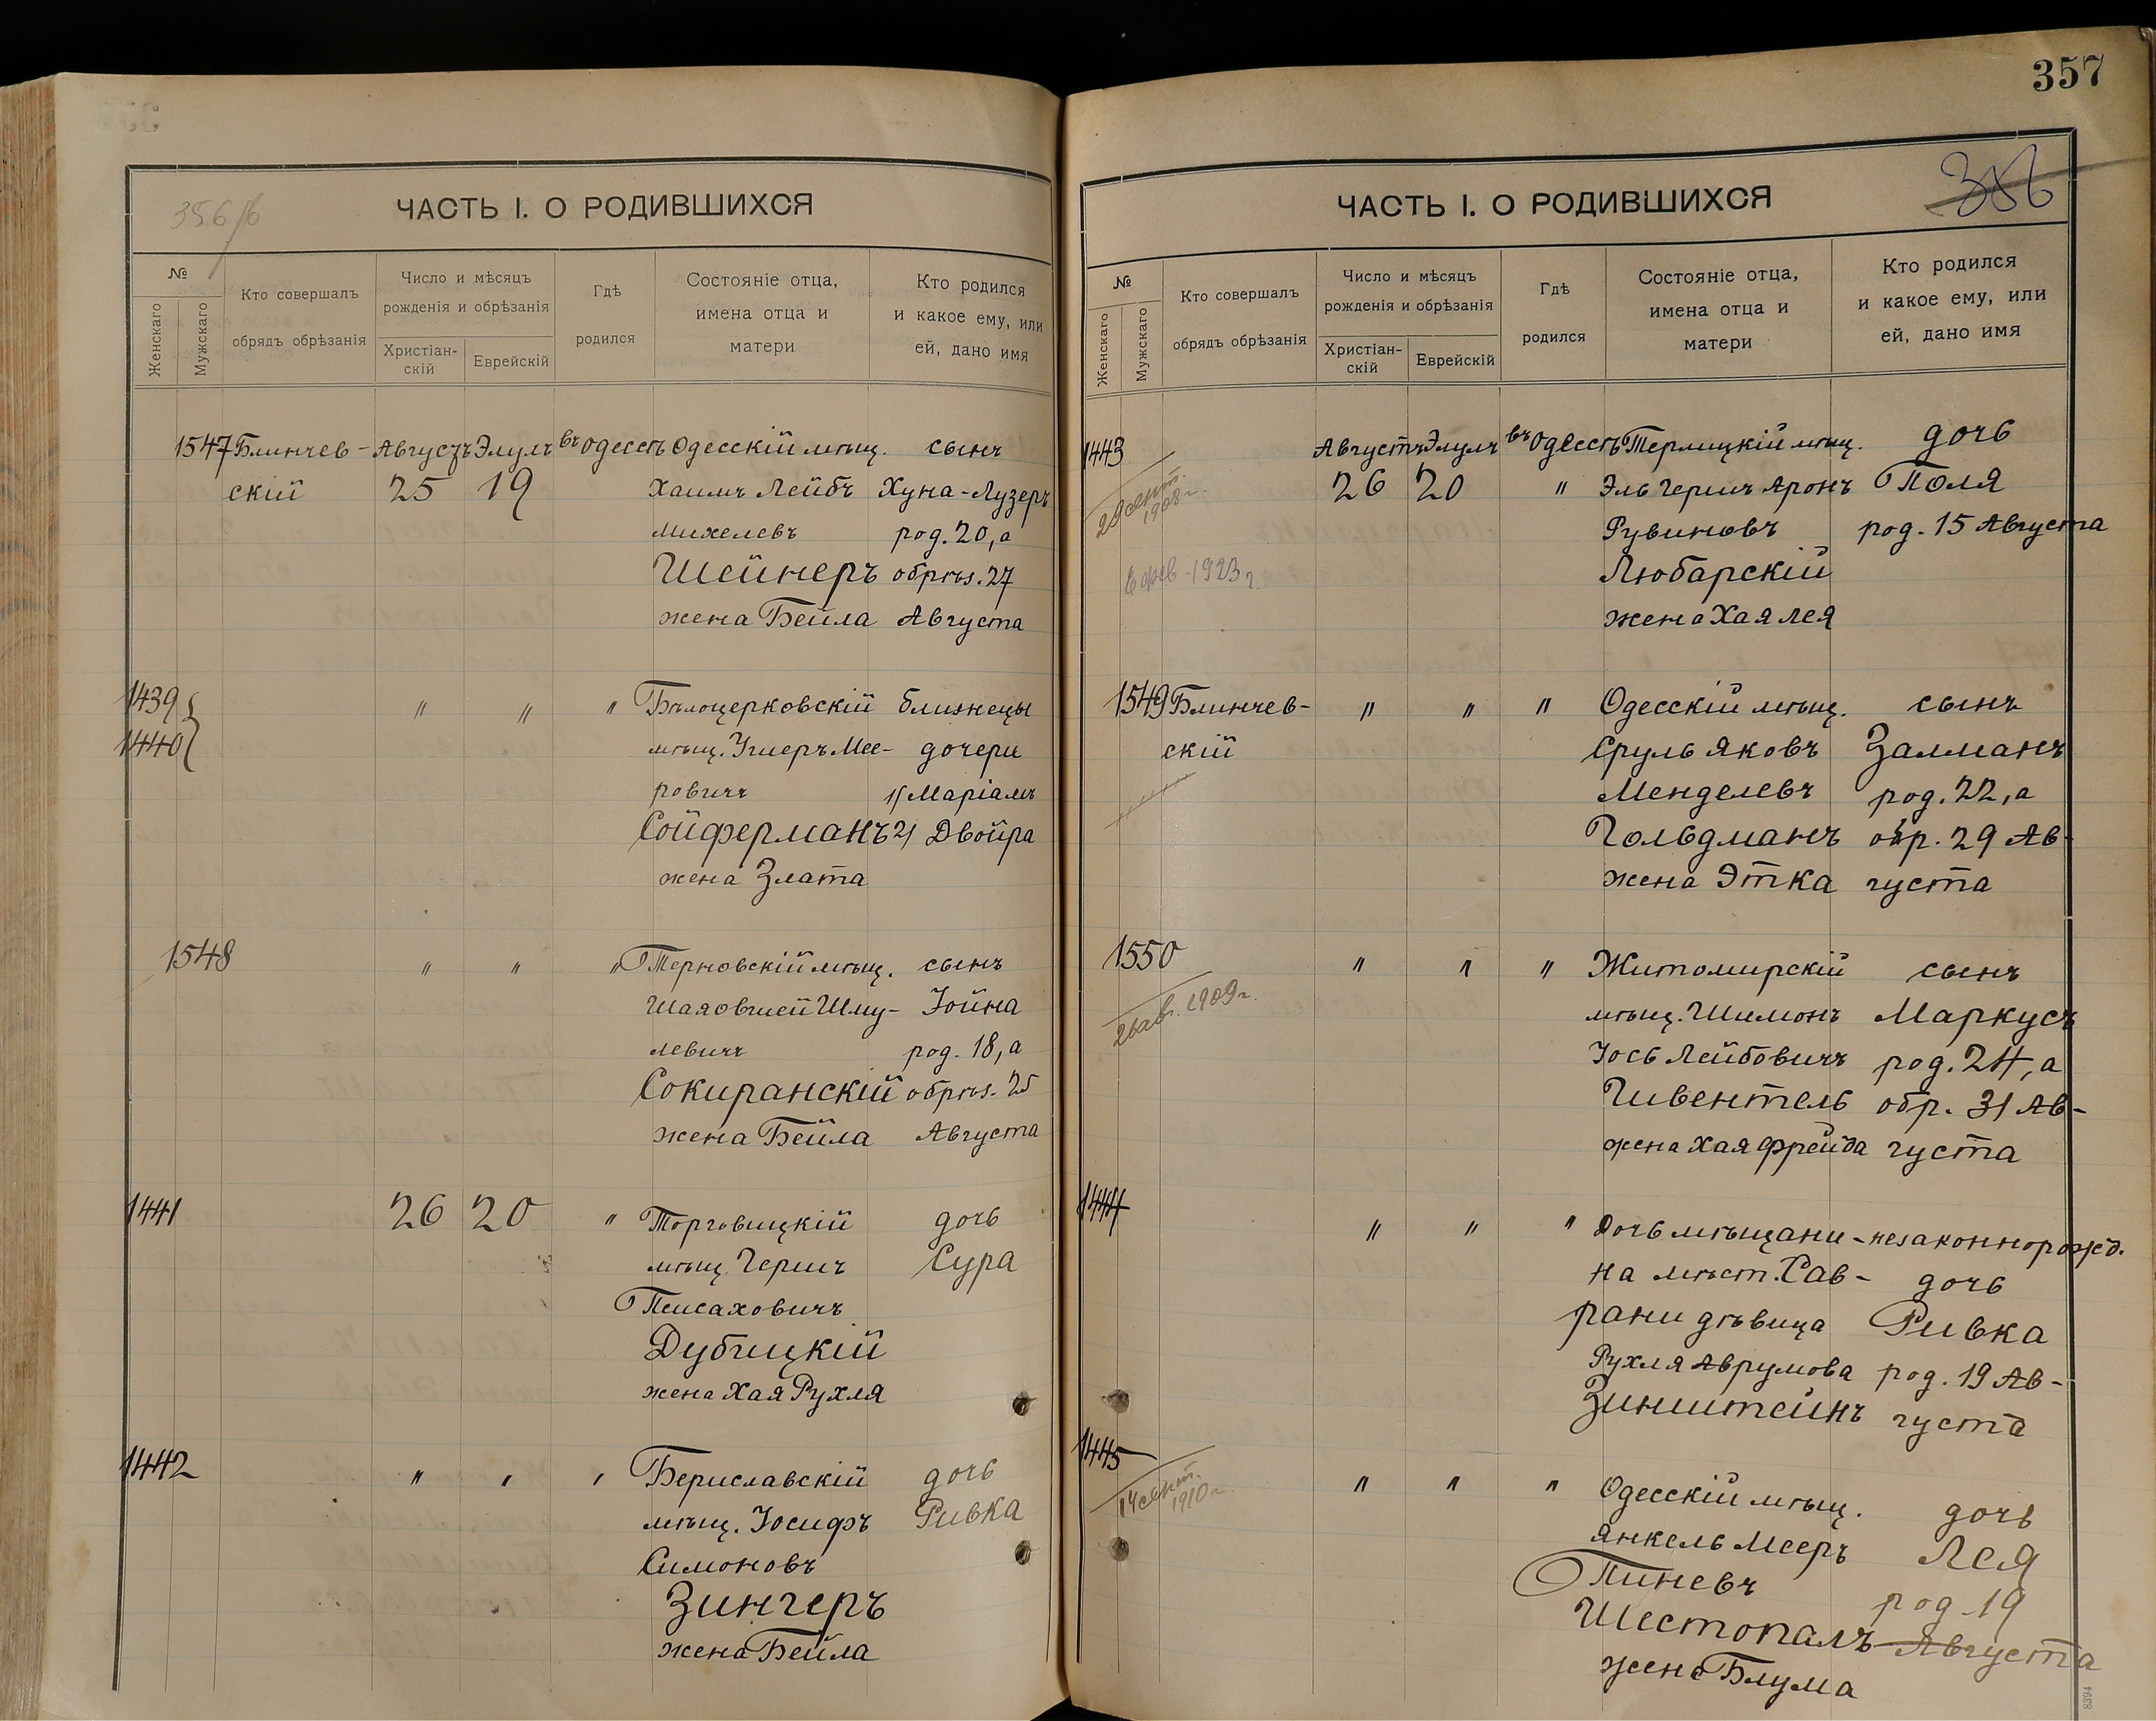 357
356/б
ЧАСТЬ I. О РОДИВШИХСЯ
№
Женскаго
Мужскаго
Кто совершалъ
обрядъ обрѣзанія
Число и мѣсяцъ
рожденія и обрѣзанія
Христіан-
скій
Еврейскій
Гдѣ
родился
Состояніе отца,
имена отца и
матери
Кто родился
и какое ему, или
ей, дано имя
1547 Блинчев- Августъ Элулъ въ Одессѣ Одесскій мѣщ. сынъ
скій 25 19 Хаимъ Лейбъ Хуна-Лузеръ
Михелевъ род. 20, а
Шейнеръ обрѣз. 27
жена Бейла Августа
1439 " " " Бѣлоцерковскій близнецы
1440 мѣщ. Ушеръ Мее- дочери
ровичъ 1/ Маріамъ
Сойферманъ 2/ Двойра
жена Злата
1548 " " " Терновскій мѣщ. сынъ
Шая Овшей Шму- Іойна
левичъ род. 18, а
Сокиранскій обрѣз. 25
жена Бейла Августа
1441 26 20 " Торговицкій дочь
мѣщ. Гершъ Сура
Пейсаховичъ
Дубицкій
жена Хая Рухля
1442 " " " Бериславскій дочь
мѣщ. Іосифъ Ривка
Симоновъ
Зингеръ
жена Бейла
356
ЧАСТЬ I. О РОДИВШИХСЯ
№
Женскаго
Мужскаго
Кто совершалъ
обрядъ обрѣзанія
Число и мѣсяцъ
рожденія и обрѣзанія
Христіан-
скій
Еврейскій
Гдѣ
родился
Состояніе отца,
имена отца и
матери
Кто родился
и какое ему, или
ей, дано имя
1443 Августъ Элулъ въ Одессѣ Терлицкій мѣщ. дочь
29 сент. 26 20 " Эль Гершъ Аронъ Поля
1908 г. Рувиновъ род. 15 Августа
6 фев. 1923 г. Любарскій
жена Хая Лея
1549 Блинчев- " " " Одесскій мѣщ. сынъ
скій Сруль Яковъ Залманъ
Менделевъ род. 22, а
Гольдманъ обр. 29 Ав-
жена Этка густа
1550 " " " Житомирскій сынъ
26 ав. 1909 г. мѣщ. Шимонъ Маркусъ
Іось Лейбовичъ род. 24, а
Гивентель обр. 31 Ав-
жена Хая Фрейда густа
1444 " " " Дочь мѣщани- незаконнорожд.
на мѣст. Сав- дочь
рани дѣвица Ривка
Рухля Аврумова род. 19 Ав-
Зинштейнъ густа
1445 " " " Одесскій мѣщ. дочь
14 сент. Янкель Мееръ Лея
1910 г. Пиневъ род. 19
Шестопалъ Августа
жена Блума
8394